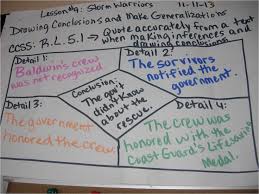 Lesson #9: Storm Warriors 11-11-13
Drawing Conclusions and Make Generalizations
CCSS: R.L.5.1 → Quote accurately from a text
when making inferences and
drawing conclusions
Detail 1:
Baldwin's crew
was not recognized
Detail 2:
The survivors
notified the
government.
Conclusion:
The gov't
didn't know
about the
rescue.
Detail 3:
The government
honored the crew.
Detail 4:
The crew was
honored with the
Coast Guard's Lifesaving
Medal.